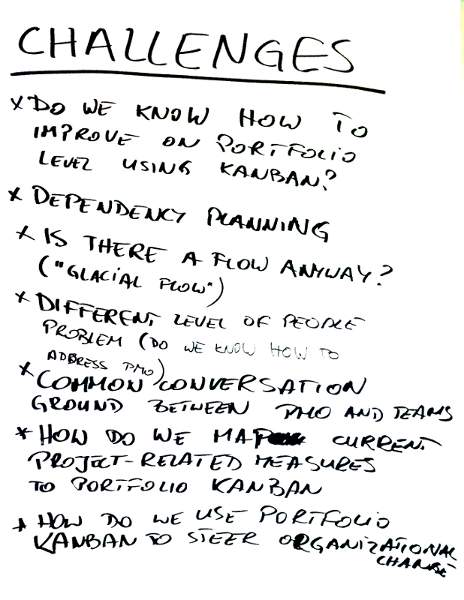 CHALLENGES
* DO WE KNOW HOW TO
IMPROVE ON PORTFOLIO
LEVEL USING KANBAN?
* DEPENDENCY PLANNING
* IS THERE A FLOW ANYWAY?
("GLACIAL FLOW")
* DIFFERENT LEVEL OF PEOPLE
PROBLEM (DO WE KNOW HOW TO
ADDRESS PMO)
* COMMON CONVERSATION
GROUND BETWEEN PMO AND TEAMS
* HOW DO WE MAP CURRENT
PROJECT-RELATED MEASURES
TO PORTFOLIO KANBAN
* HOW DO WE USE PORTFOLIO
KANBAN TO STEER ORGANIZATIONAL
CHANGE